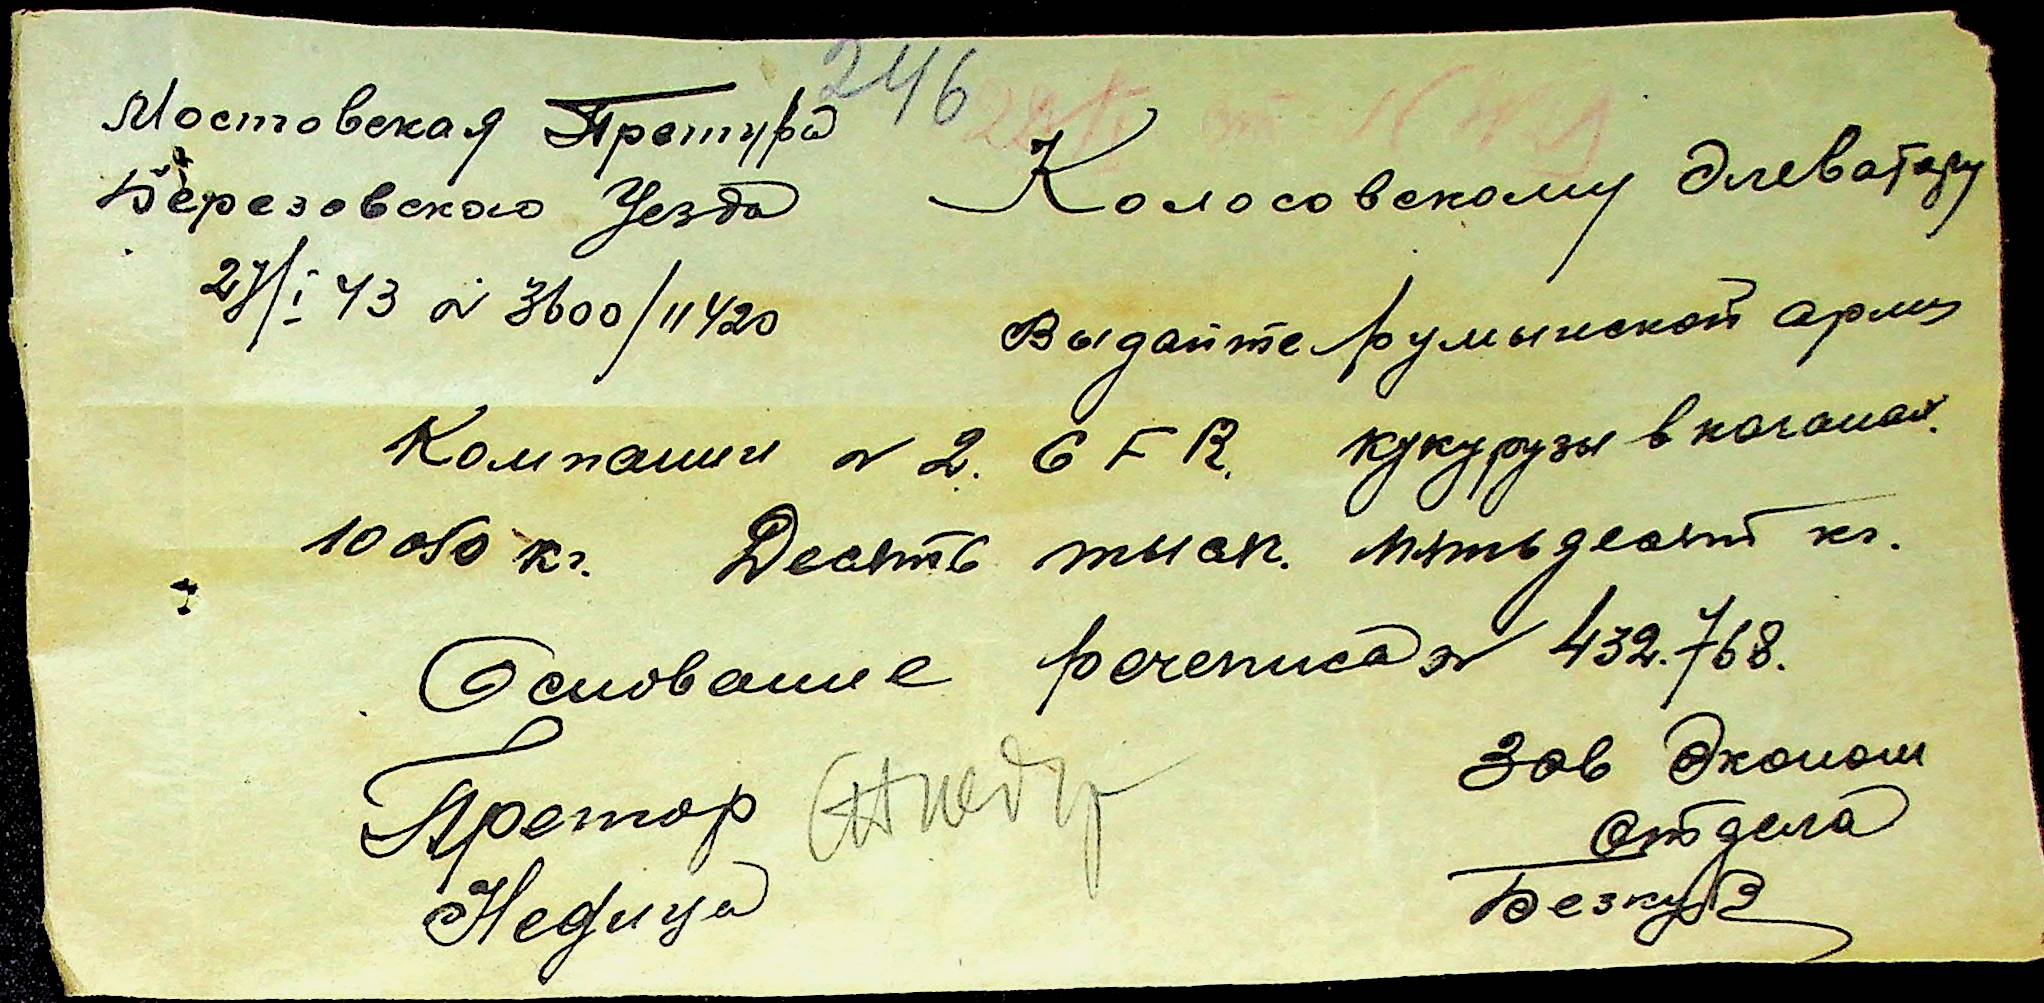 246
Мостовская Претура
Березовского Уезда
27/I 43 № 3600/11420
Колосовскому Элеватору
Выдайте румынской арми
Компании № 2. C F R. кукурузы в кочанах.
10050 кг. Десять тысяч. пятьдесят кг.
Основание росчписка № 432.768.
Претор
Недица
Зав Эконом
отдела
Безкуб